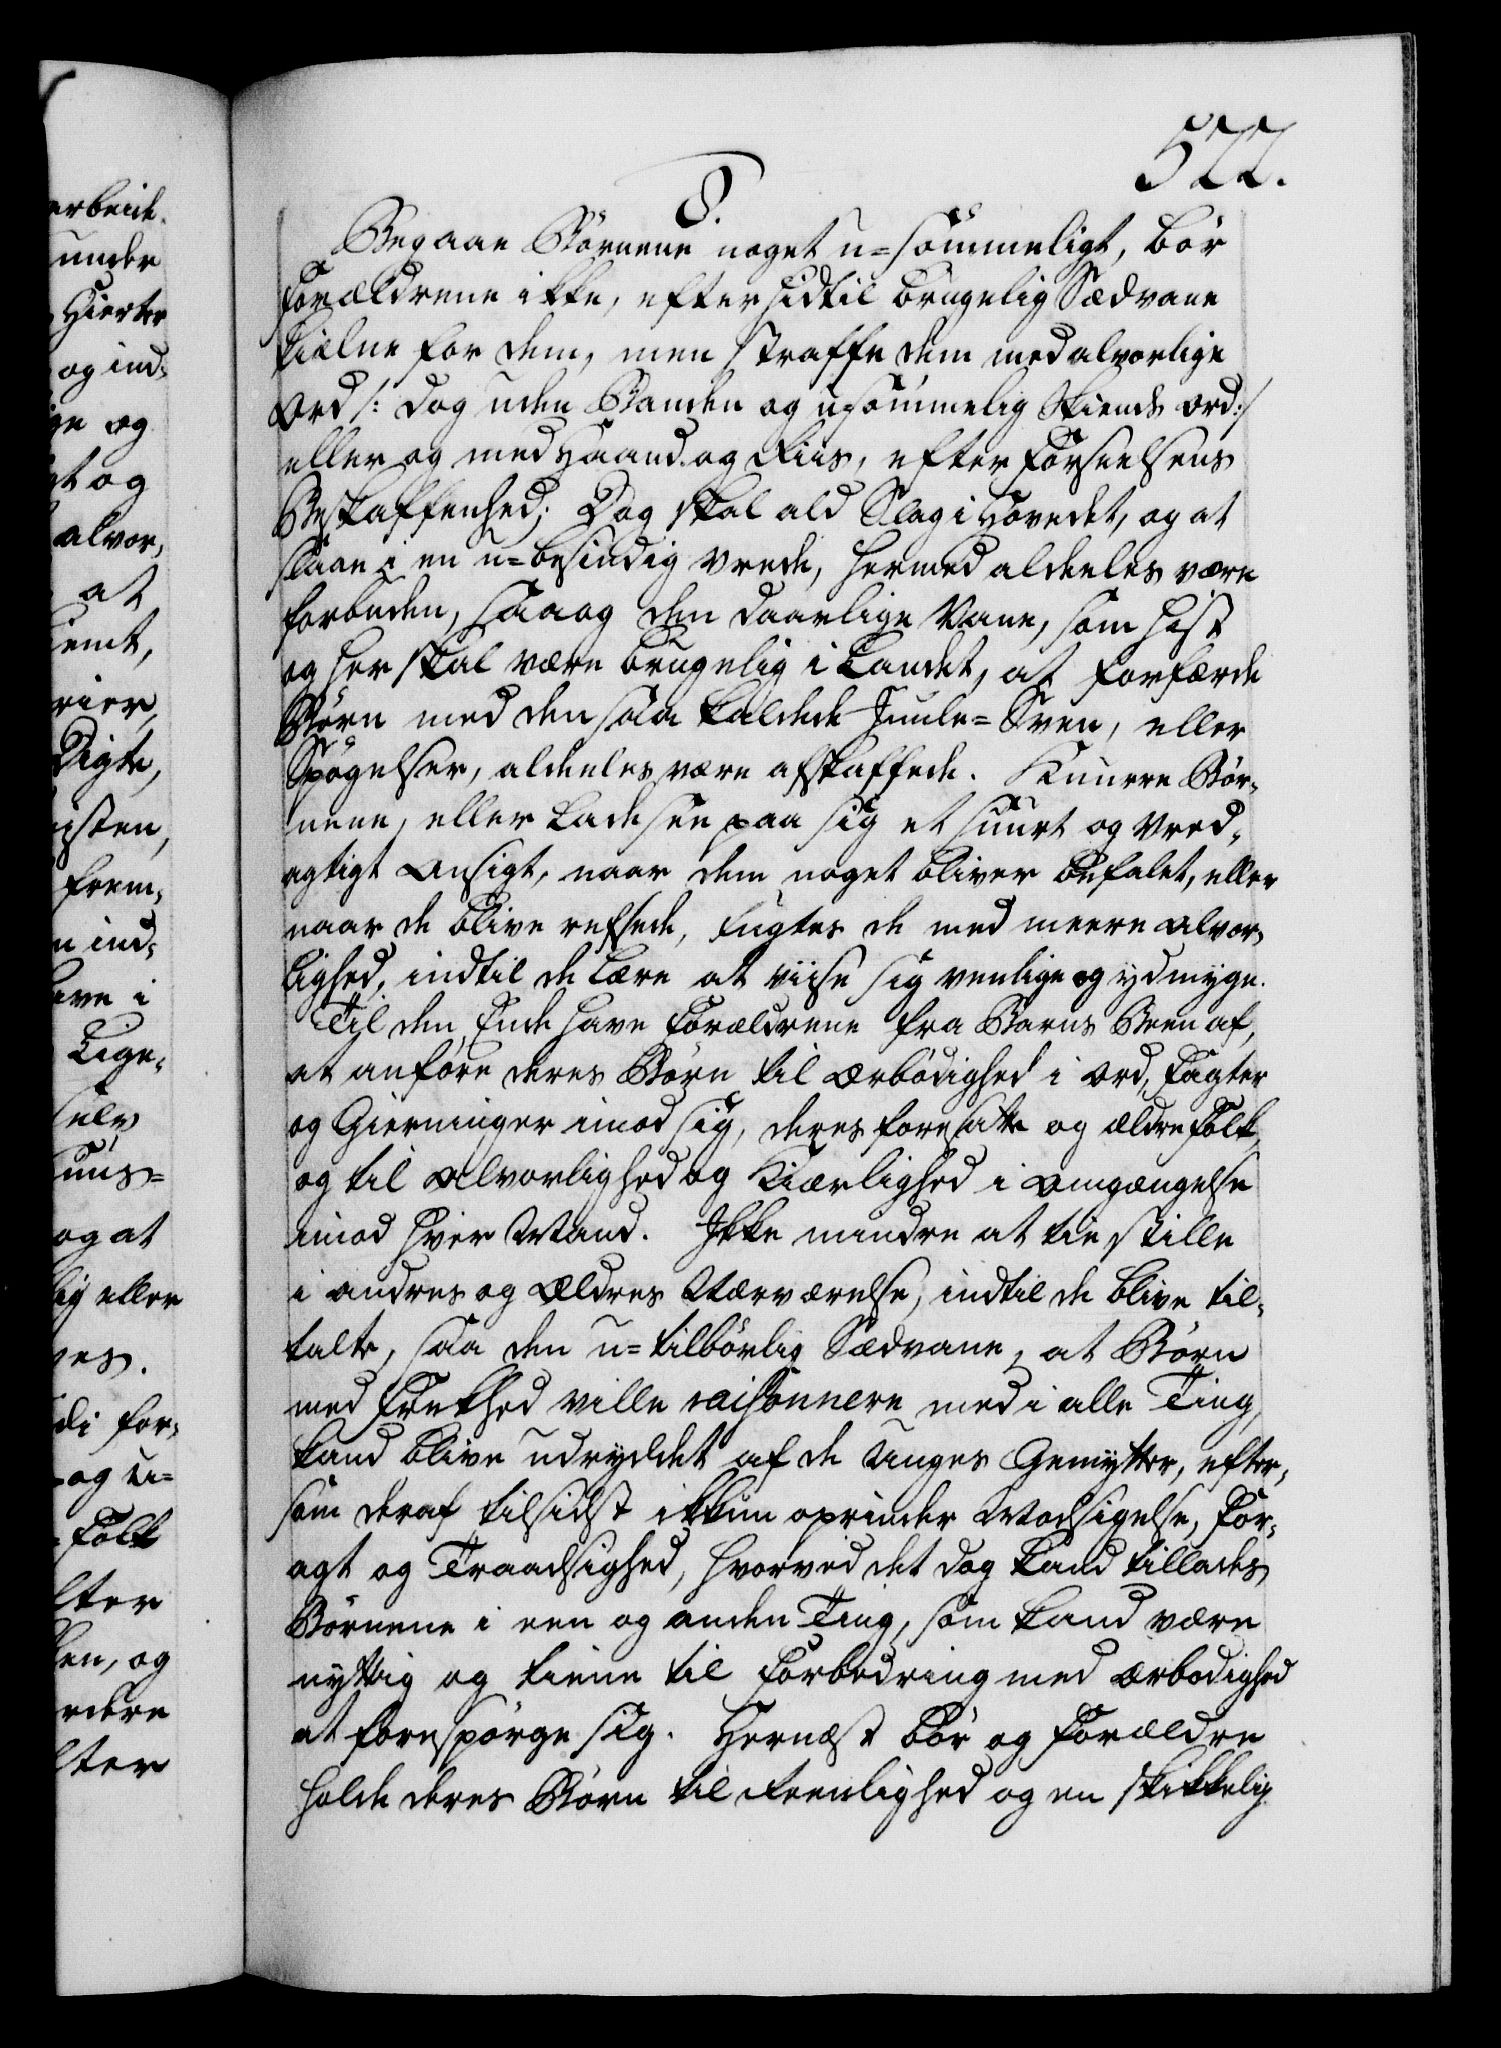 522.
8.
Begaae Börnene noget u=sömmeligt, bör
Forældrene ikke, efter hidtil brugelig Sædvane
kiælne for dem, men straffe dem med alvorlige
Ord /: dog uden Banden og usömmelig Skiends ord :/
eller og med Haand og Riis, efter Forseelsens
Beskaffenhed; Dog skal ald Slag i Hovedet, og at
slaae i en u=besindig Vrede, hermed aldeeles være
forbuden, saa og den daarlige Vane, som hist
og her skal være brugelig i Landet, at forfærde
Börn med den saa kaldede Juule=Sven, eller
Spögelser, aldeeles være afskaffede. Knurre Bör-
nene, eller lade see paa sig et suurt og vred-
agtigt Ansigt, naar dem noget bliver befalet, eller
naar de blive refsede, tugtes de med meere Alvor-
lighed, indtil de lære at viise sig venlige og ydmyge.
Til den Ende have Forældrene fra Barns Been af,
at anföre deres Börn til Ærbödighed i Ord, Fagter
og Gierninger imod sig, deres foresatte og ældre Folk,
og til Alvorlighed og Kiærlighed i Omgængelse
imod hver Mand. Ikke mindre at tie stille
i andres og Ældres Nærværelse, indtil de blive til-
talte, saa den u=tilbörlig Sædvane, at Börn
med Frekhed ville raisonnere med i alle Ting,
kand blive udryddet af de Unges Gemytter, efter-
som deraf tilsidst ikkun oprinder Modsigelse, For-
agt og Traadsighed, hvorved det dog kand tillades
Börnene i een og anden Ting, som kand være
nyttig og tiene til Forbedring med Ærbodighed
at forespörge sig. Hernæst bör og Forældre
holde deres Börn til Reenlighed og en skikkelig